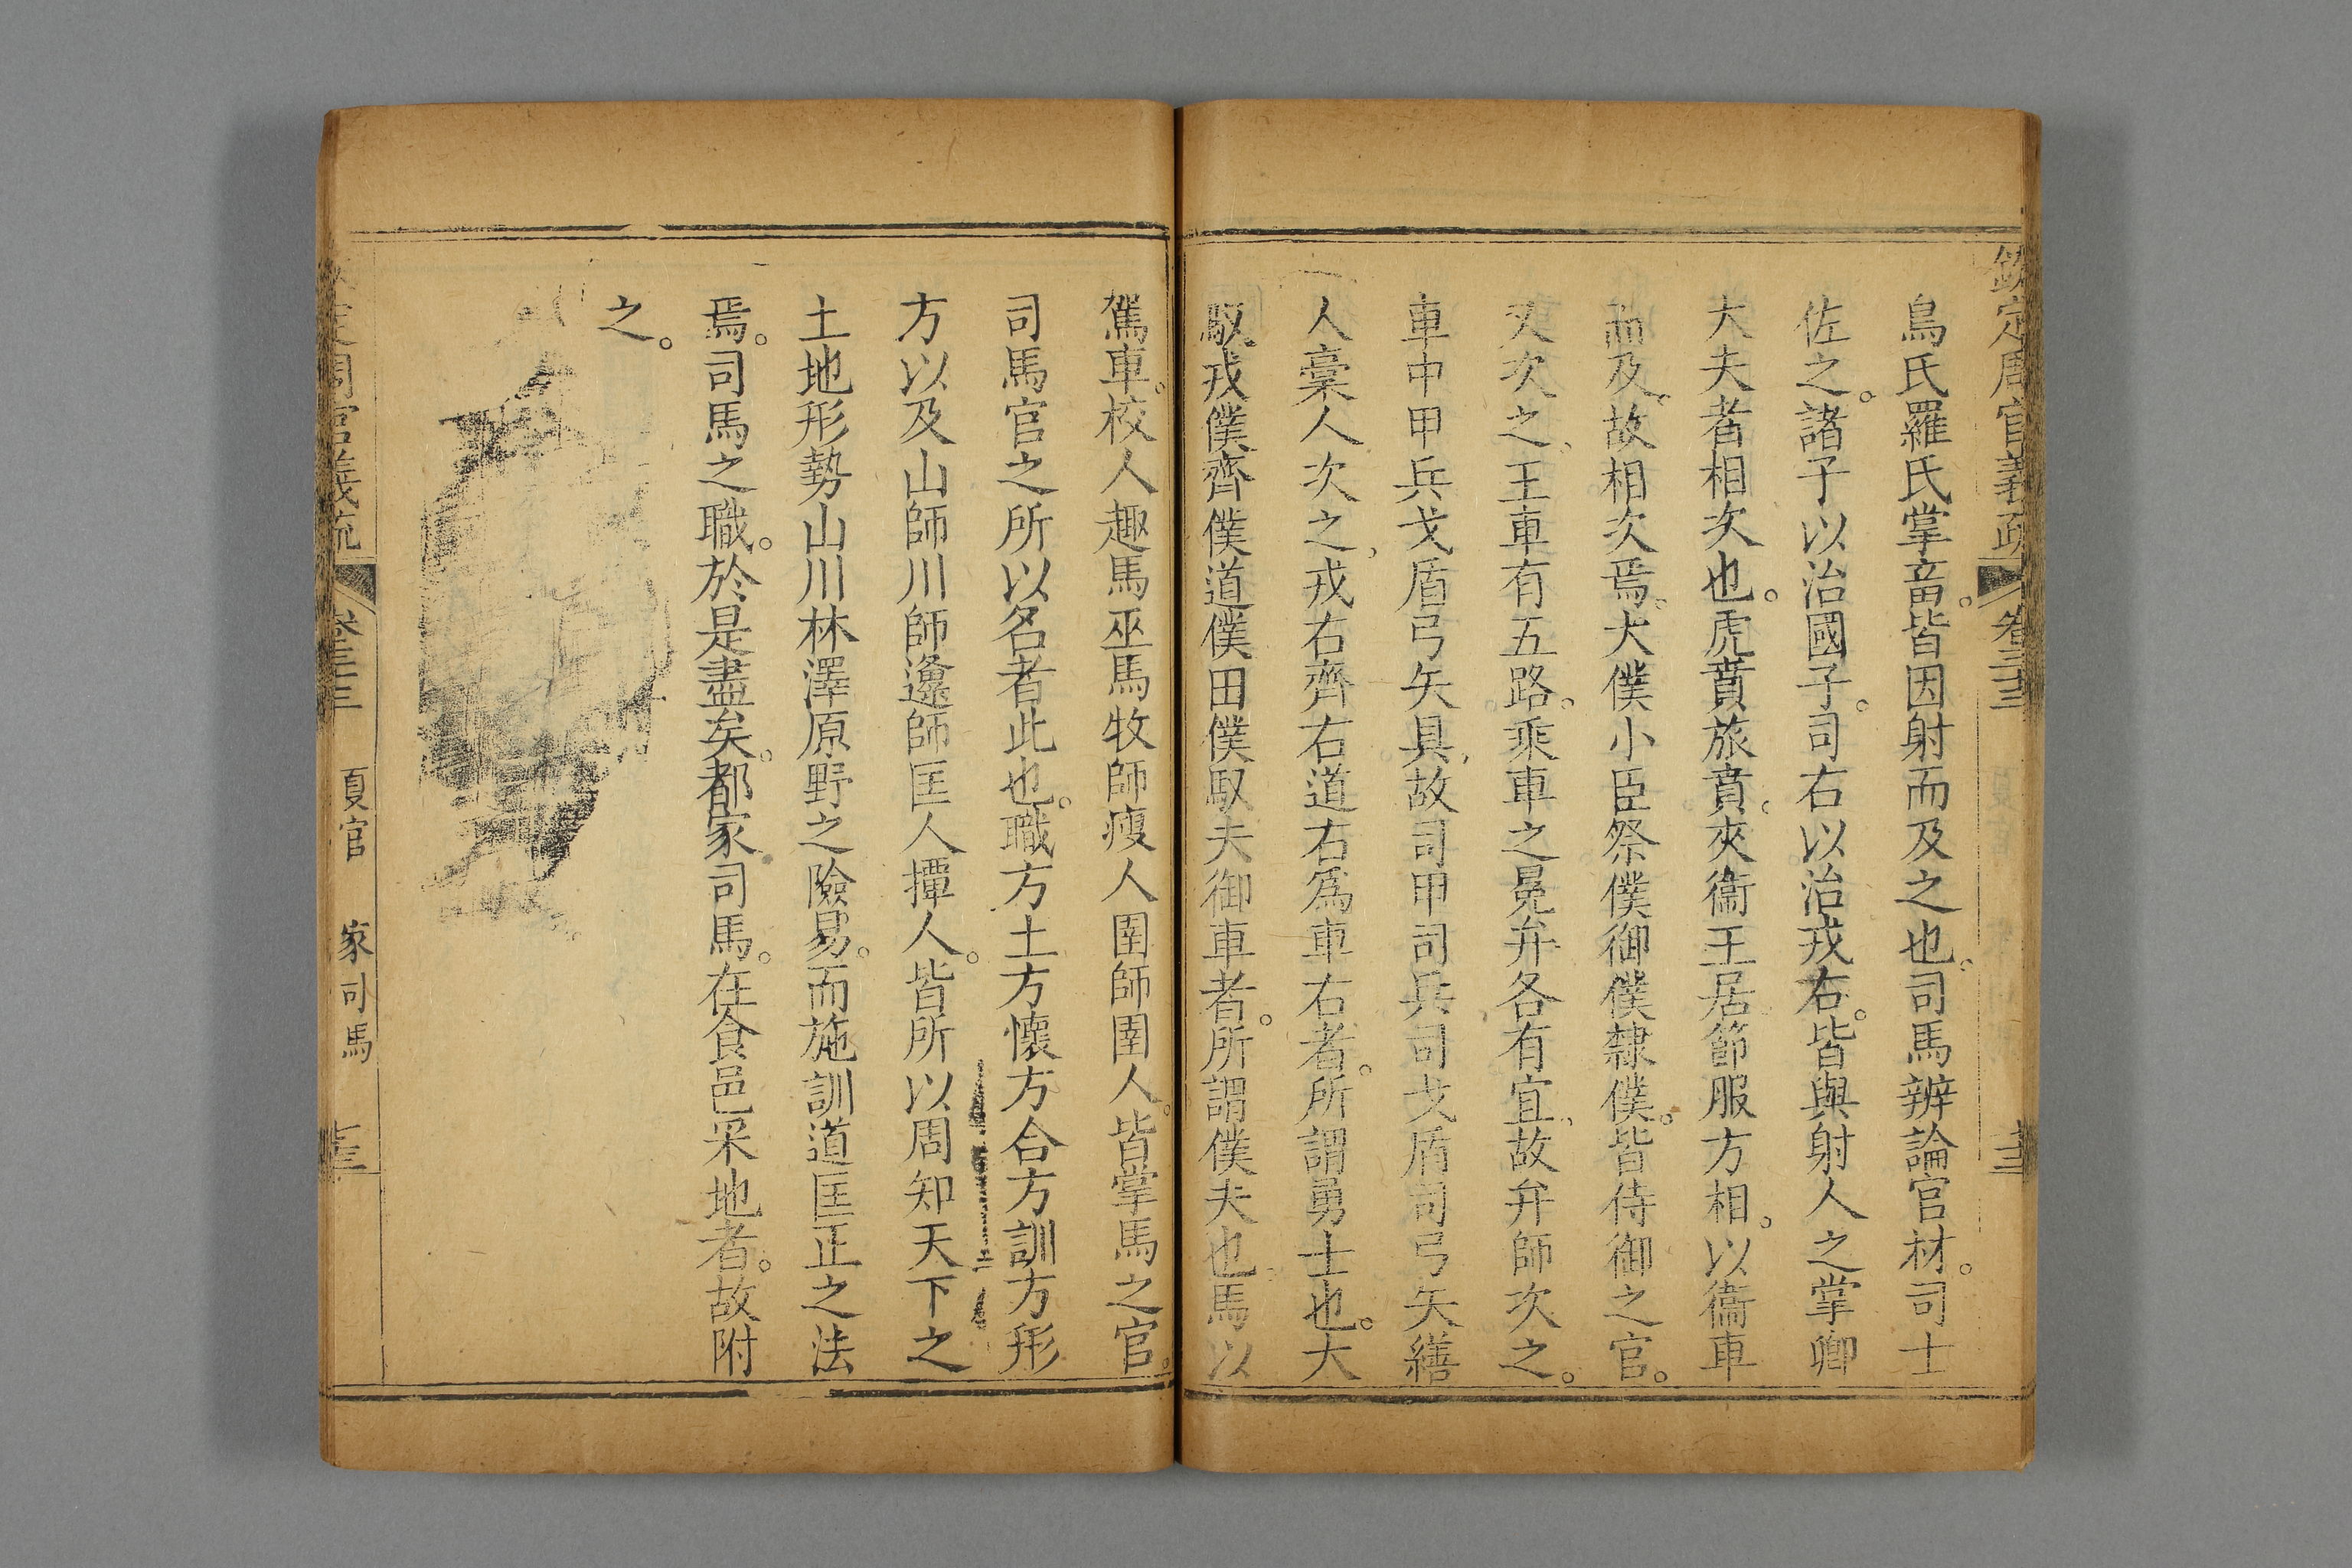 欽定周官義疏 卷三十三
鳥氏羅氏掌畜。皆因射而及之也。司馬辨論官材。司士
佐之。諸子以治國子。司右以治戎右。皆與射人之掌卿
大夫者相次也。虎賁旅賁。夾衞王居。節服方相。以衞車
而及。故相次焉。大僕小臣祭僕御僕隸僕。皆侍御之官。
又次之、王車有五路。乘車之冕弁各有宜、故弁師次之。
車中甲兵戈盾弓矢具、故司甲司兵司戈盾司弓矢繕
人槀人次之、戎右齊右道右爲車右者。所謂勇士也。大
馭戎僕齊僕道僕田僕馭夫御車者。所謂僕夫也。馬以
駕車。校人趣馬巫馬牧師廋人圉師圉人。皆掌馬之官。
司馬官之所以名者此也。職方土方懷方合方訓方形
方以及山師川師邍師匡人撢人。皆所以周知天下之
土地形勢山川林澤原野之險易。而施訓道匡正之法
焉。司馬之職。於是盡矣。都家司馬。在食邑采地者。故附
之。
周官義疏 卷三十三 夏官 家司馬